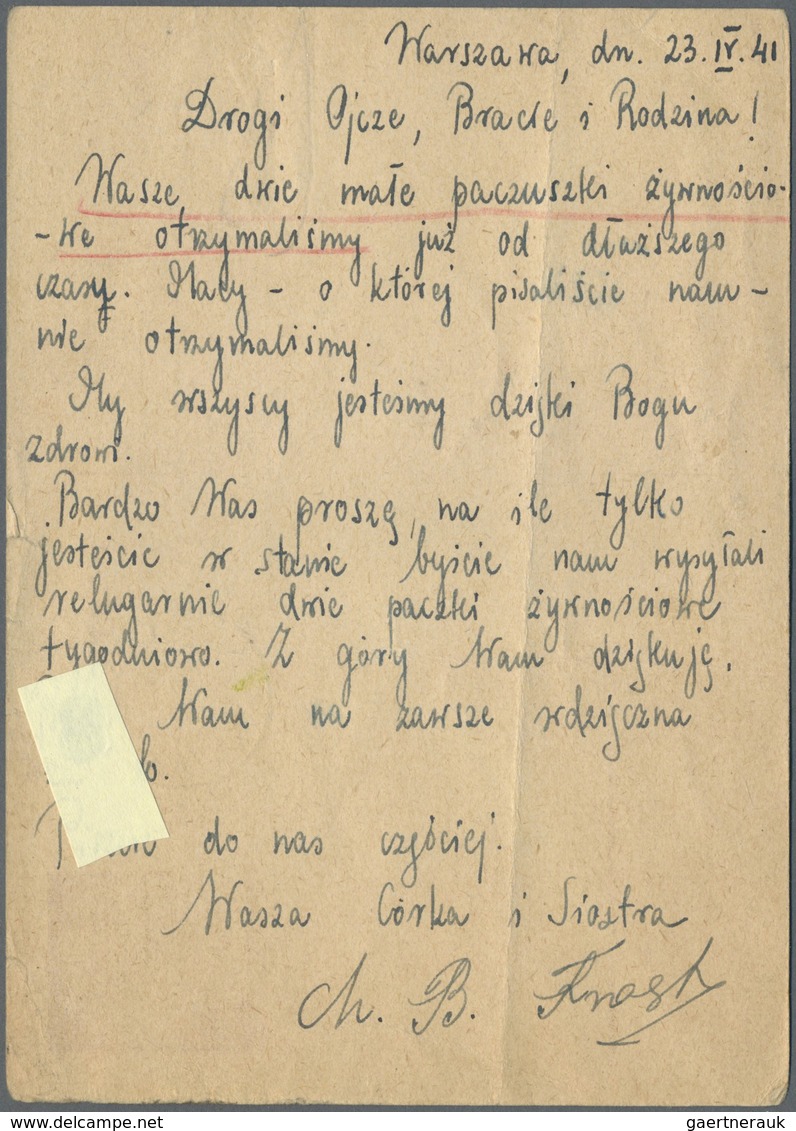 Warszawa, dn. 23.IV.41
Drogi Ojcze, Bracie i Rodzina!
Wasze dwie małe paczuszki żywnościo-
-we otrzymaliśmy już od dłuższego
czasu. Macy - o której pisaliście nam -
nie otrzymaliśmy.
My wszyscy jesteśmy dzięki Bogu
zdrowi.
Bardzo Was proszę, na ile tylko
jesteście w stanie byście nam wysyłali
relugarnie dwie paczki żywnościowe
tygodniowo. Z góry Wam dziękuję.
Wam na zawsze wdzięczna
do nas częściej.
Wasza Córka i Siostra
Ch. B. Frost
www.delcampe.net
gaertnerauk